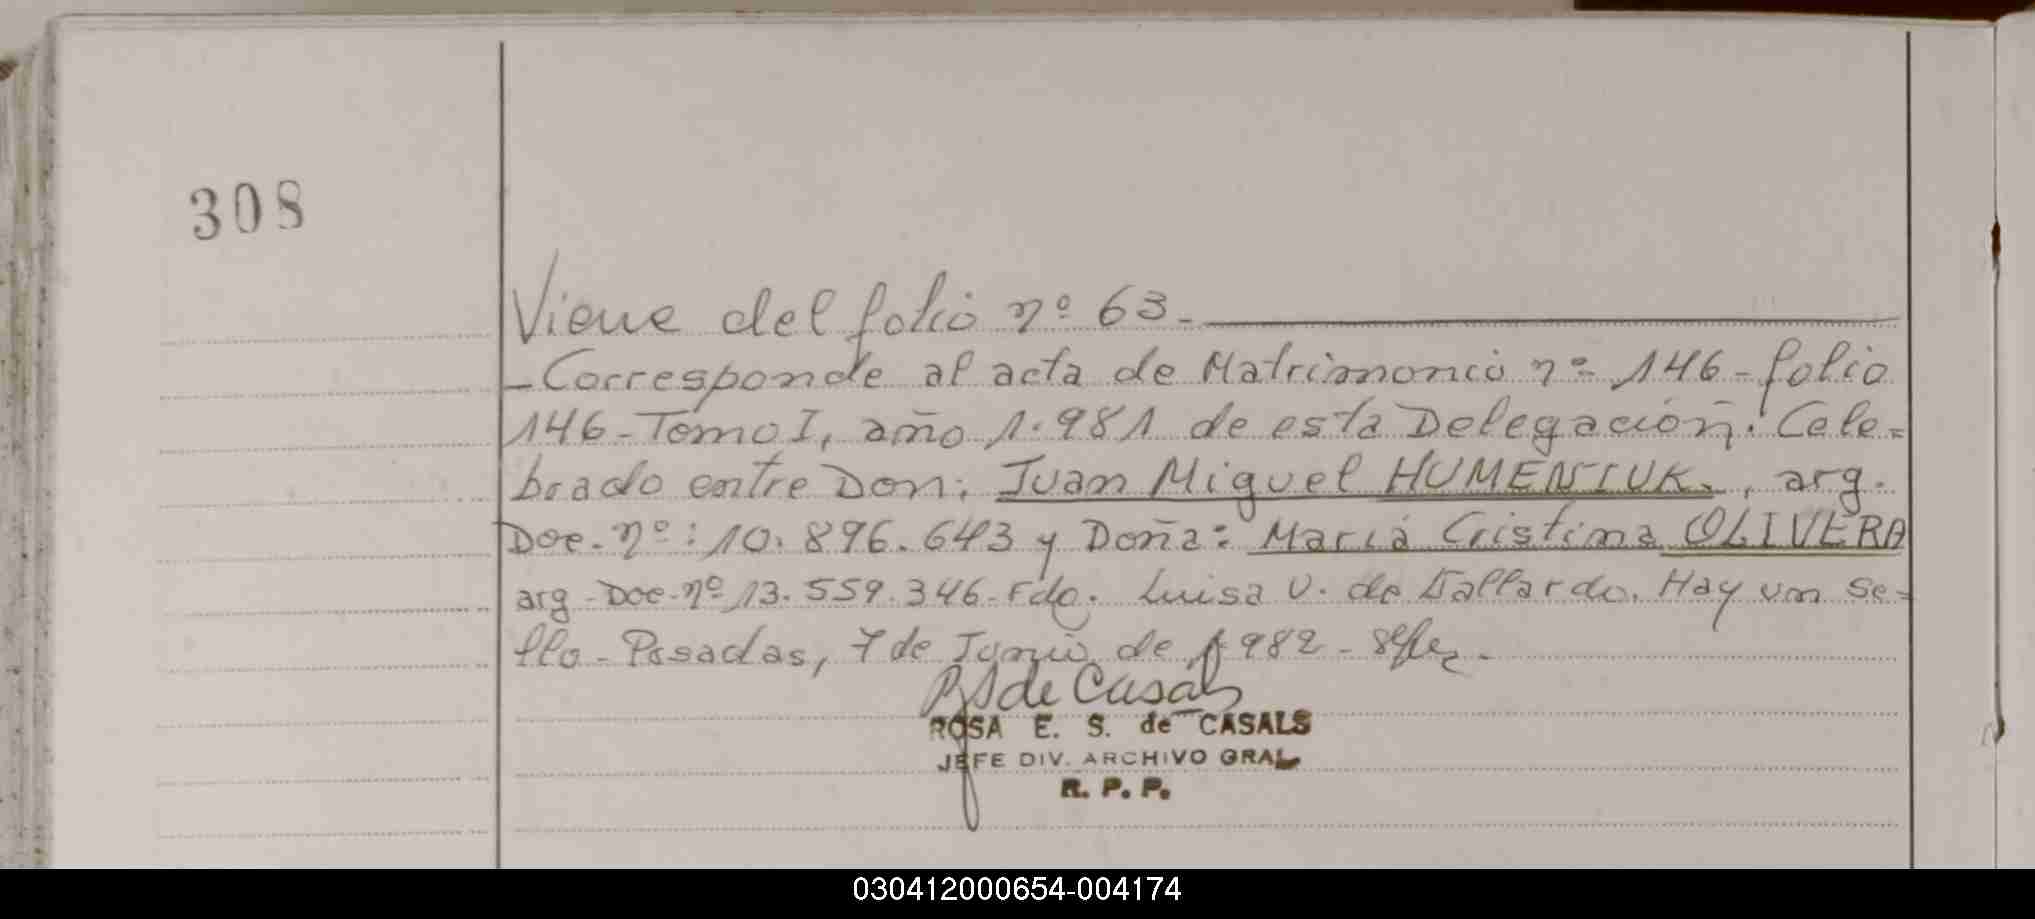 308
Viene del folio nº 63.-
-Corresponde al acta de Matrimonio nº 146-folio
146-Tomo I, año 1.981 de esta Delegación. Cele=
brado entre Don: Juan Miguel HUMENIUK., arg.
Doc. nº: 10.896.643 y Doña: María Cristina OLIVERA
arg-Doc-nº 13.559.346-Fdo. Luisa V. de Gallardo. Hay un se=
llo-Posadas, 7 de Junio de 1982-
RS de Casals
ROSA E. S. de CASALS
JEFE DIV. ARCHIVO GRAL
R. P. P.
030412000654-004174